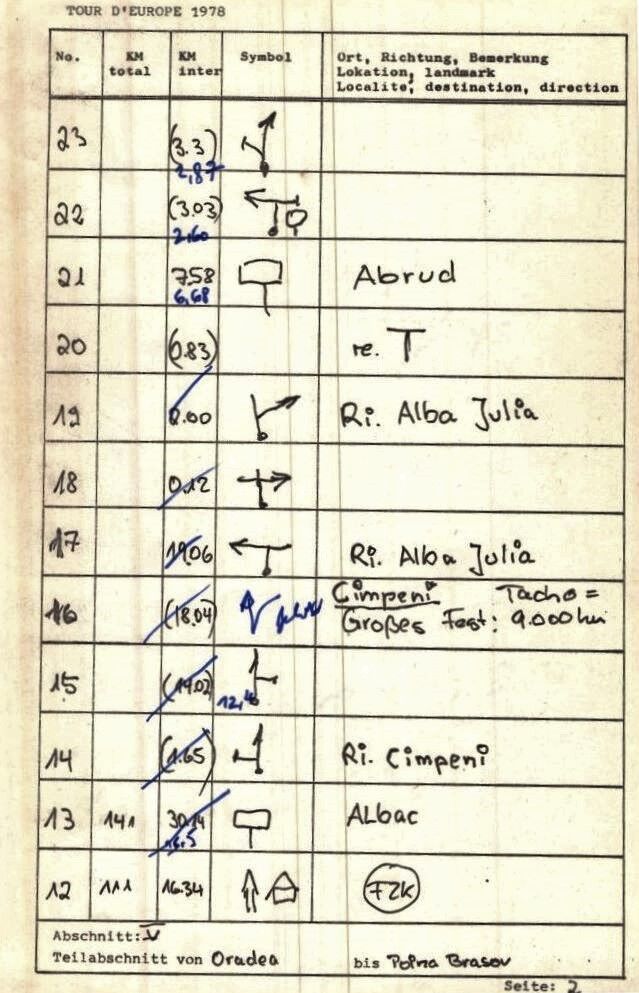 TOUR D'EUROPE 1978
No. KM total KM inter Symbol Ort, Richtung, Bemerkung
Lokation, landmark
Localite, destination, direction
23 (3.3)
2,87
22 (3.03)
2,60
21 7.58 Abrud
6,68
20 (0.83) re. T
19 0.00 Ri. Alba Julia
18 0.12
17 19.06 Ri. Alba Julia
16 (18.04) Cimpeni Tacho =
Großes Fest: 9.000 km
15 (14.02)
14 (1.65) Ri. Cimpeni
13 141 30.14 ALbac
16.5
12 111 16.34 FZK
Abschnitt: V
Teilabschnitt von Oradea bis Poina Brasov
Seite: 2